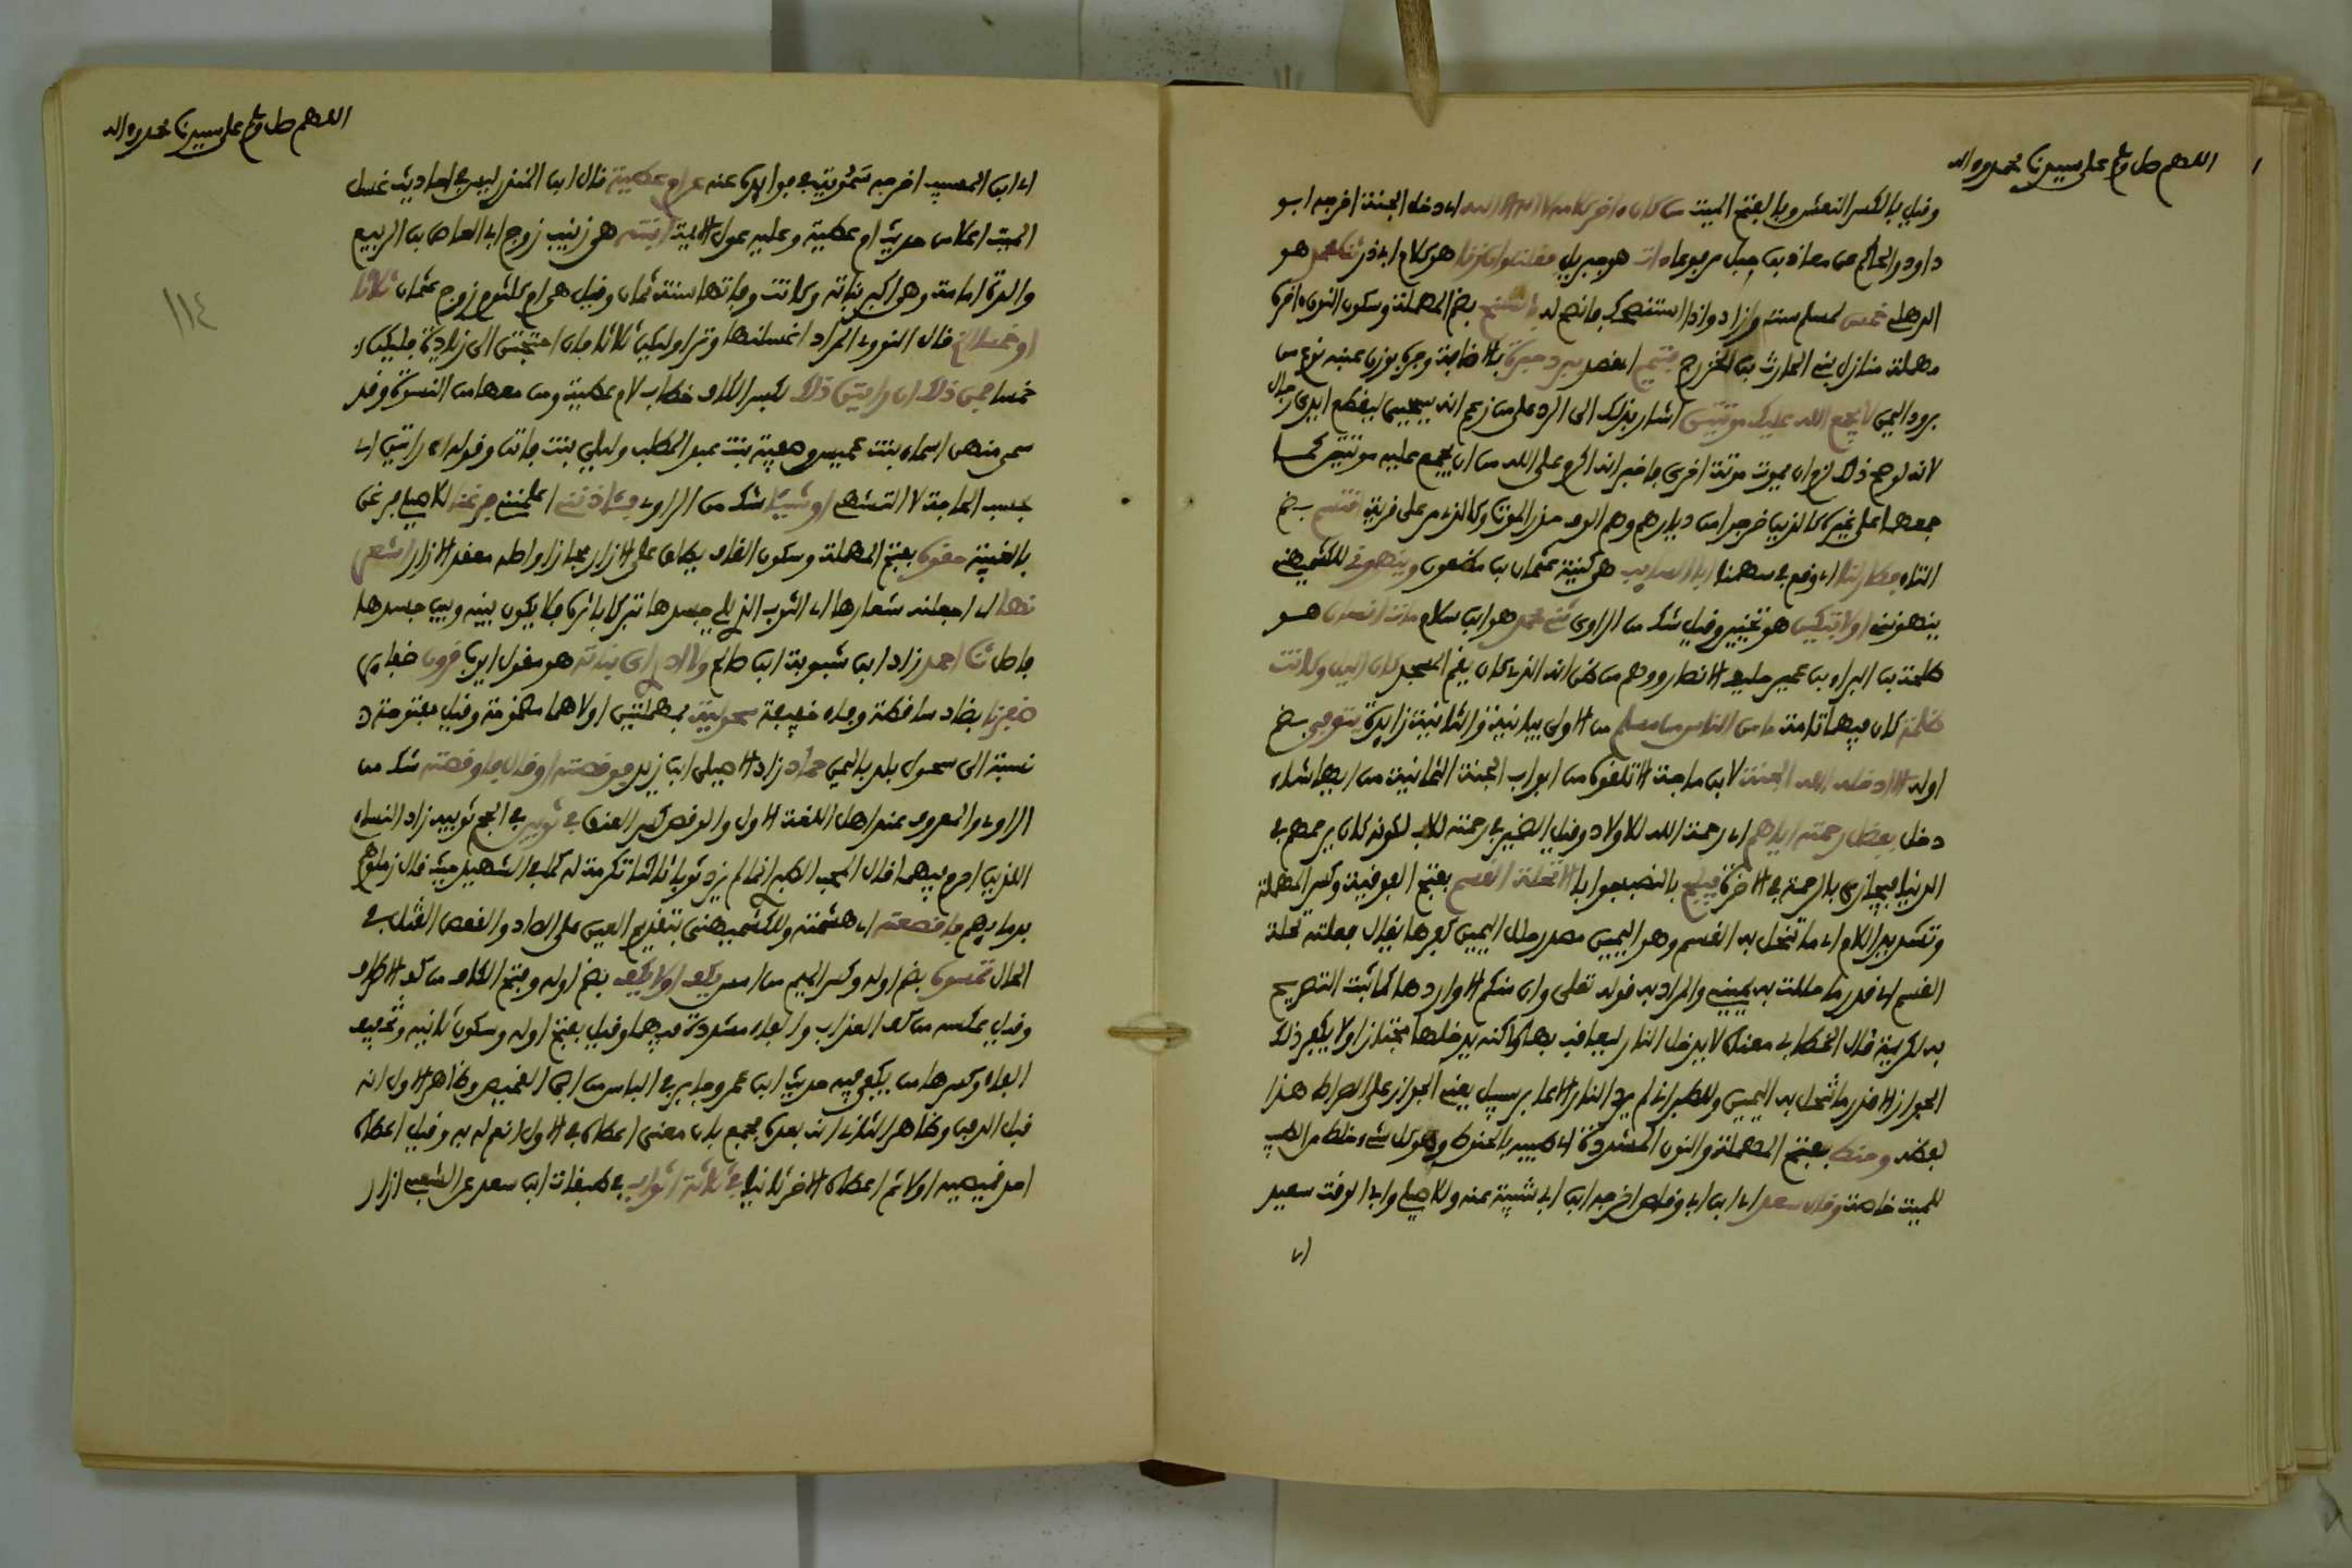 اللهم صل وسلم على سيدنا محمد وءاله
وقيل بالكسر النعش وبالفتح الميت من كان ءاخر كلامه لا اله الا الله اي دخل الجنة اخرجه ابو
داود والحاكم عن معاذ بن جبل مرفوعا ءات هو جبريل فقلت وان زنا هو كلام ابي ذر هو
الدهلي خمس لمسلم ست وزاد واذا استنصحك فانصح له بالسنح بضم المهملة وسكون النون ءاخره
مهملة منازل بني الحارث بن الخزرج فتيمم اي قصد برد حبرة بالاضافة وحبرة بوزن عنبة نوع من
برود اليمن لا يجمع الله عليك موتتين اشار بذلك الى الرد على من زعم انه سيحيى ليقطع ايدي رجال
لانه لو صح ذلك لزم ان يموت موتة اخرى فاخبر انه اكرم على الله من ان يجمع عليه موتتين كما
جمعهما على غيره كالذين خرجوا من ديارهم وهم الوف حذر الموت وكالذي مر على قرية اقتسم بضم
التاء فطار لنا اي وقع في سهمنا ابا السايب هي كنية عثمان بن مظعون وينهوني للكشميهني
ينهونني او لا تبكين هو تخيير وقيل شك من الراوي ثني محمد هو ابن سلام مات انسان هو
طلحة بن البراء بن عمير حليف الانصار ووهم من ظن انه الذي كان يقم المسجد كان الليل وكانت
ظلمة كان فيهما تامة ما من الناس من مسلم من الاولى بيانية والثانية زايدة يتوفى بضم
اوله الا ادخله الله الجنة لابن ماجة الا تلقوه من ابواب الجنة الثمانية من ايها شاء
دخل بفضل رحمته اياهم اي رحمة الله للاولاد وقيل الضمير في رحمته للاب لكونه كان يرحمهم في
الدنيا فيجازى بالرحمة في الاخرة فيلج بالنصب جوابا الا تحلة القسم بفتح الفوقية وكسر المهملة
وتشديد اللام اي ما تنحل به القسم وهو اليمين مصدر حلل اليمين كفرها يقال فعلته تحلة
القسم اي قدر ما حللت به يميني والمراد به قوله تعلى وان منكم الا واردها كما ثبت التصريح
به لكريمة قال الخطابي معناه لا يدخل النار ليعاقب بها ولكنه يدخلها مجتازا ولا يكون ذلك
الجواز الا قدر ما تنحل به اليمين وللطبراني لم يرد النار الا عابر سبيل يعني الجواز على الصراط هذا
لفظه وحنط بفتح المهملة والنون المشددة اي طيبه بالحنوط وهو كل شيء خلط من الطيب
للميت خاصة وقال سعد اي ابن ابي وقاص اخرجه ابن ابي شيبة عنه وللاصيلي وابي الوقت سعيد
اي
اللهم صل وسلم على سيدنا محمد وءاله
١١٤
اي ابن المسيب اخرجه سموية في فوايده عنه عن ام عطية قال ابن المنذر ليس في احاديث غسل
الميت اعلا من حديث ام عطية وعليه عول الايمة ابنته هي زينب زوج ابي العاصي بن الربيع
والدة امامة وهي اكبر بناته وكانت وفاتها سنة ثمان وقيل هي ام كلثوم زوج عثمان ثلاثا
او خمسا الخ قال النووي المراد اغسلنها وترا وليكن ثلاثا فان احتجتن الى زيادة فليكن
خمسا من ذلك ان رايتن ذلك بكسر الكاف خطاب لام عطية ومن معها من النسوة وقد
سمي منهن اسماء بنت عميس وصفية بنت عبد المطلب وليلى بنت قانف وقوله ان رايتن اي
بحسب الحاجة لا التشهي او شيئا شك من الراوي فئاذنني اعلمنني فرغنا للاصيلي فرغن
بالغيبة حقوه بفتح المهملة وسكون القاف يطلق على الازار مجازا واصله معقد الازار اشعر
نها اي اجعلنه شعارها اي الثوب الذي يلي جسدها تبركا باثره فلا يكون بينه وبين جسدها
فاصل ثنا احمد زاد ابن شبوية ابن صالح ولا ادري اي بناته هو مقول ايوب قرون ضفاير
ضفرنا بضاد ساقطة وفاء خفيفة سحولية بمهملتين اولاهما مضمومة وقيل مفتوحة
نسبة الى سحول بلد باليمن حماد زاد الاصيلي ابن زيد فوقصته او قال فاوقصته شك من
الراوي والمعروف عند اهل اللغة الاول والوقص كسر العنق في ثوبين في الحج ثوبيه زاد النساءي
اللذين احرم فيهما قال المحب الطبري انما لم يزد ثوبا ثالثا تكرمة له كما في الشهيد حيث قال زملوهم
بدمايهم فاقصعته اي هشمته وللكشميهني بتقديم العين على الصاد والقعص القتل في
الحال تمسوه بضم اوله وكسر الميم من امس يكف او لا يكف بضم اوله وفتح الكاف من كف الاطراف
وقيل بعكسه من كف العذاب والفاء مشددة فيهما وقيل بفتح اوله وسكون ثانيه وتخفيف
الفاء وكسرها من يكفي فيه حديث ابن عمر وجابر في الباس ابن ابي القميص وظاهر الاول انه
قبل الدفن وظاهر الثاني انه بعده فجمع بان معنى اعطاه في الاول انعم له به وقيل اعطاه
احد قميصيه اولا ثم اعطاه الاخر ثانيا في ثلاثة اثواب في طبقات ابن سعد عن الشعبي ازار